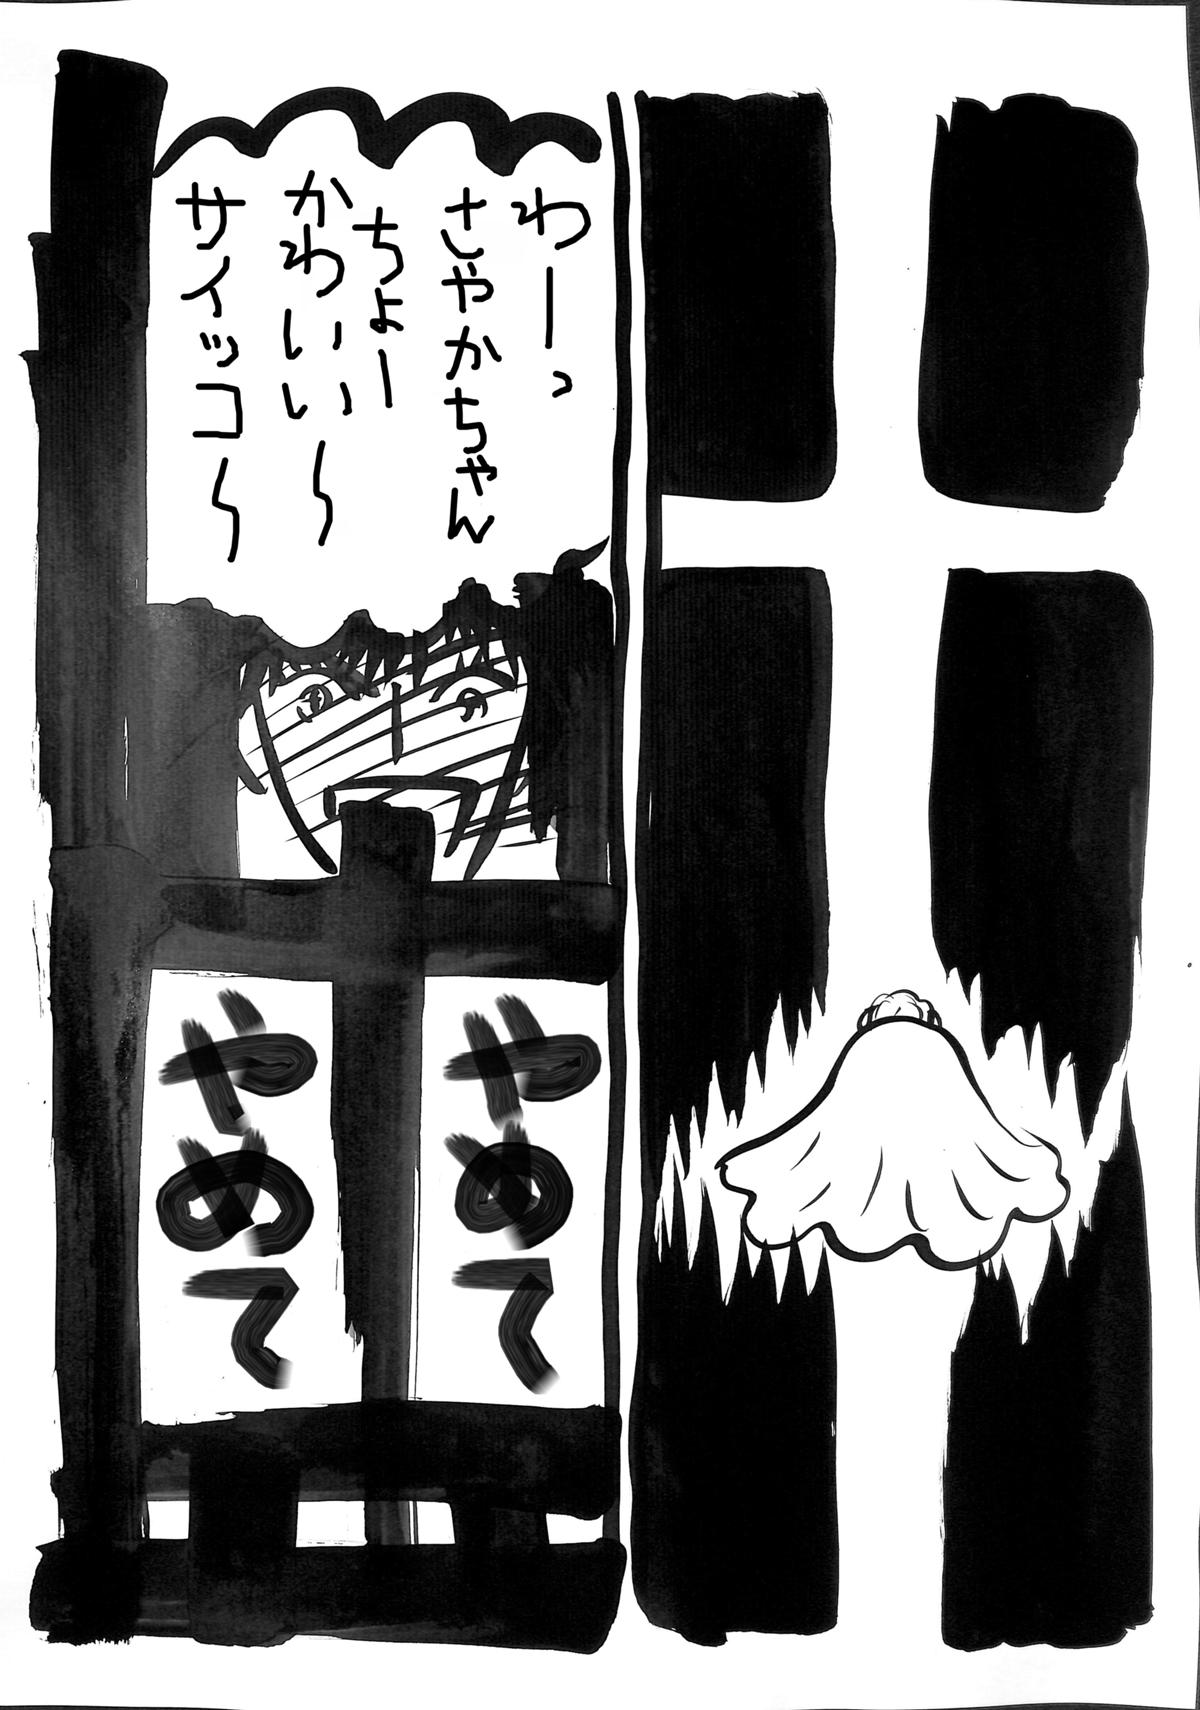 わーっ
さやかちゃん
ちょー
かわいい〜
サイッコ〜
やめて
やめて